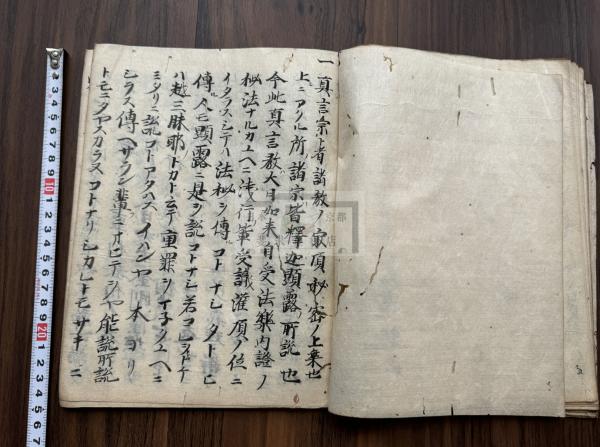 一真言宗ト者諸教ノ最頂秘密ノ上乗也
上ニアクル所諸宗皆釋迦顕露ノ所説也
今此真言教大日如来自受法樂内證ノ
秘法ナルカユヘニ浅行輩受職灌頂ノ位ニ
イタラスシテハ法秘シ傳コトナシタトヒ
傳人モ顕露ニ是ヲ説コトナシ若コレヲトケ
ハ越三昧耶トカトシテ重罪ヲイフユヘニ
ミタリニ説コトアタハスイハンヤ本ヨリ
シラス傳ヘサラン輩ニオヒテヲヤ能説所説
トモニタヤスカラヌコトナリシカレトモサキニ